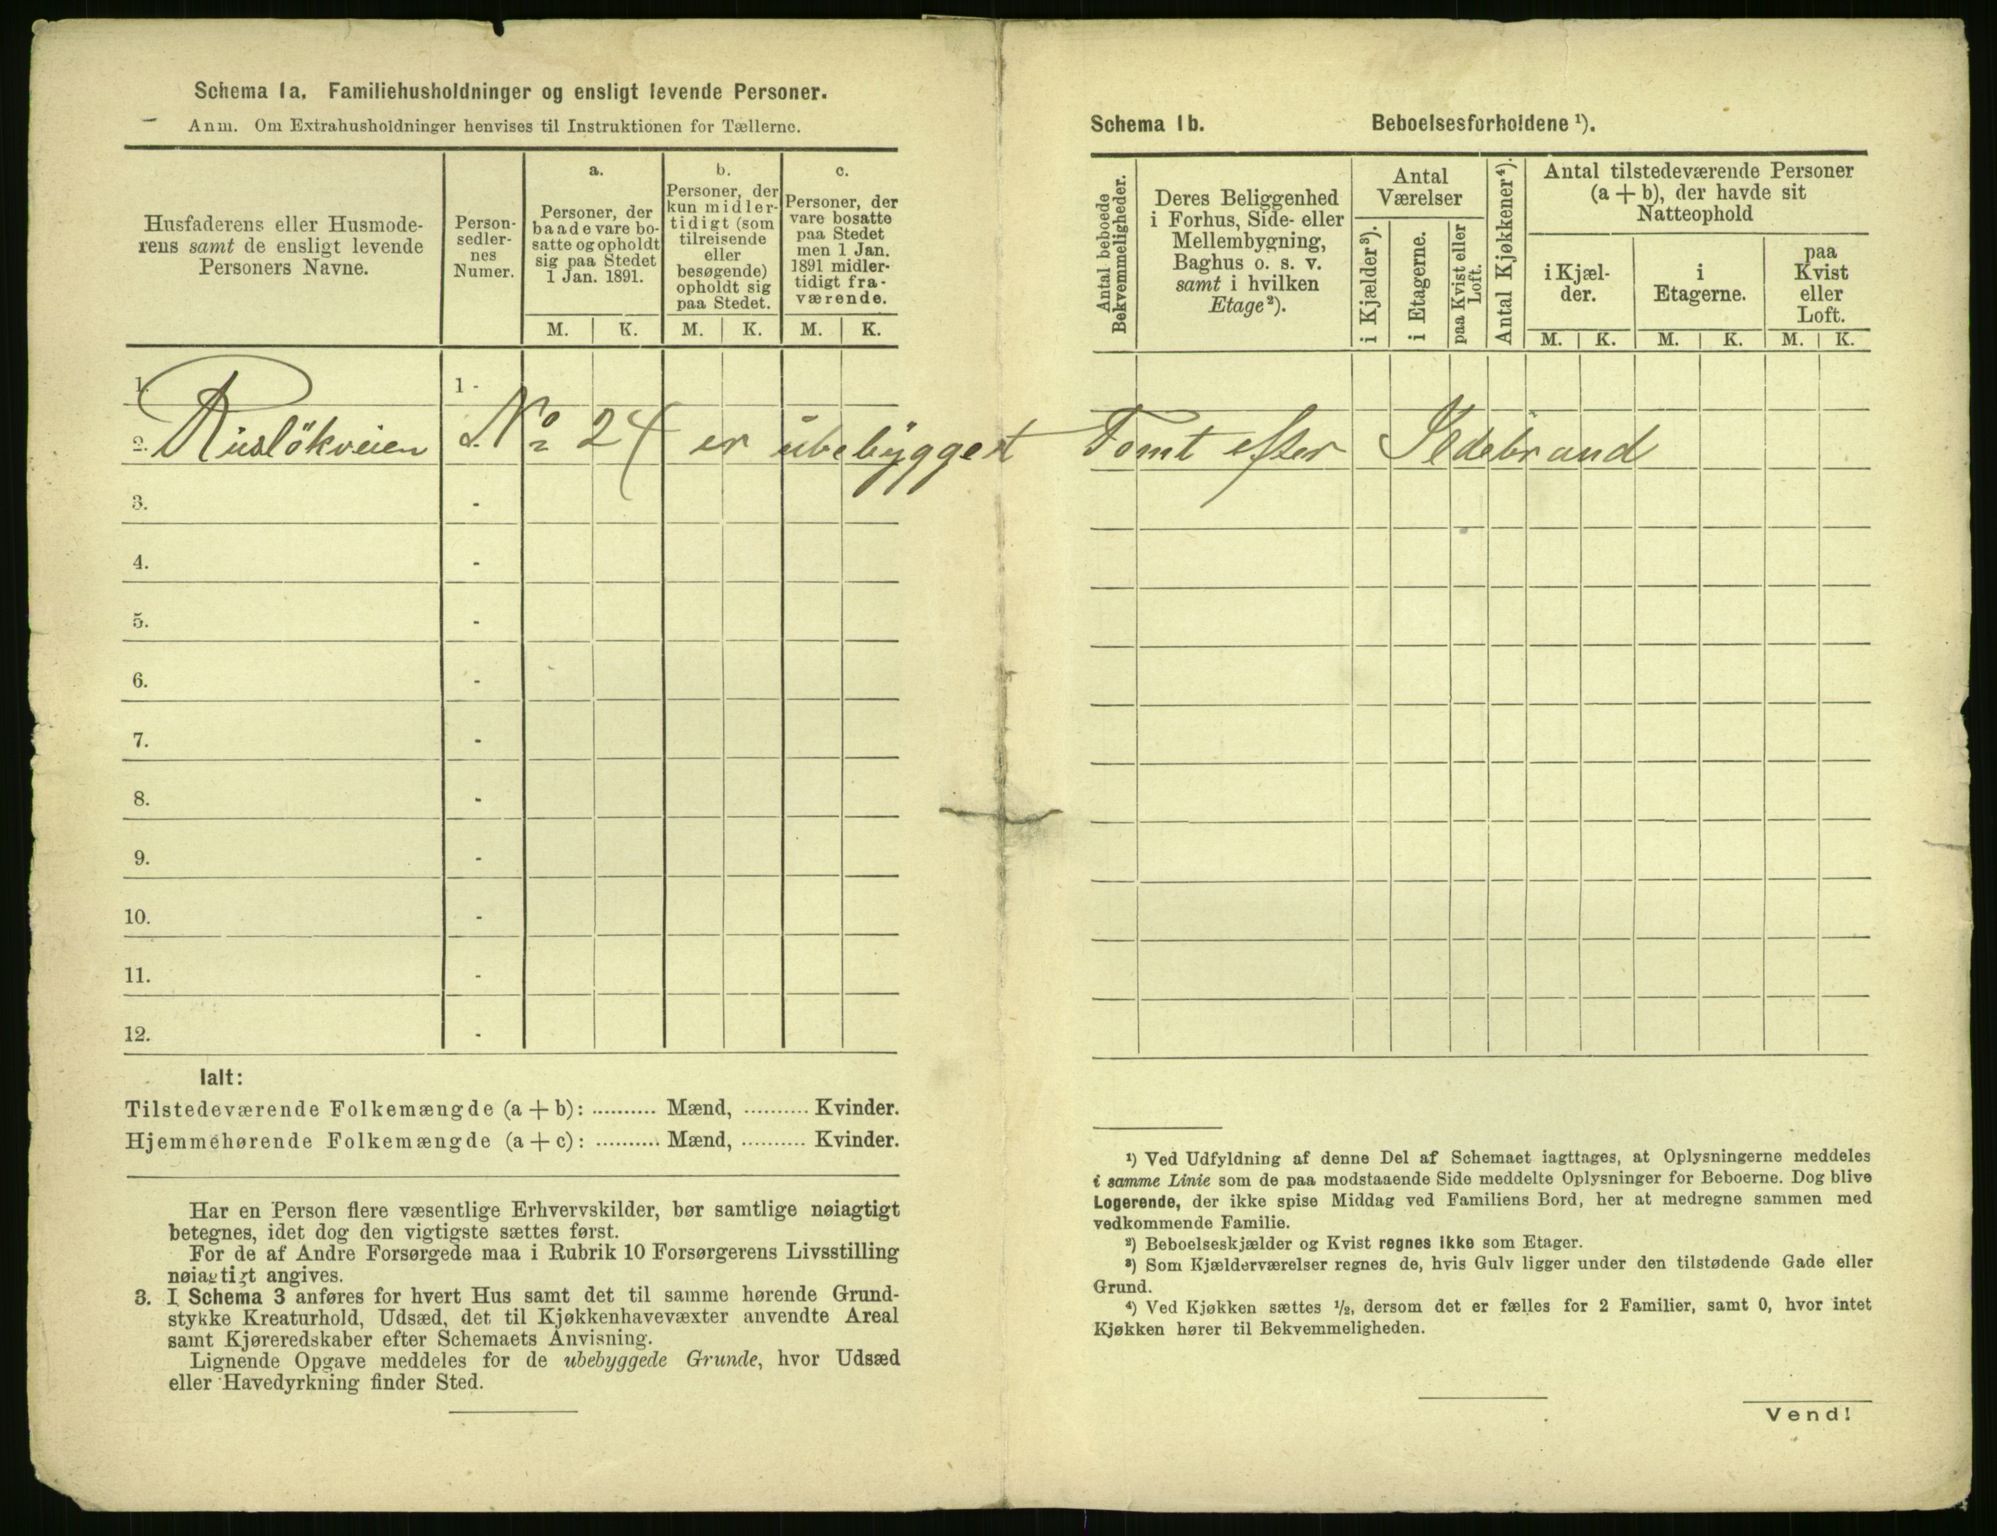 Schema 1a. Familiehusholdninger og ensligt levende Personer.
Anm. Om Extrahusholdninger henvises til Instruktionen for Tællerne.
Husfaderens eller Husmode-
rens samt de ensligt levende
Personers Navne.
Person-
sedler-
nes
Numer.
a.
Personer, der
baade vare bo-
satte og opholdt
sig paa Stedet
1 Jan. 1891.
b.
Personer, der
kun midler-
tidigt (som
tilreisende
eller
besøgende)
opholdt sig
paa Stedet.
c.
Personer, der
vare bosatte
paa Stedet
men 1 Jan.
1891 midler-
tidigt fra-
værende.
M. K. M. K. M. K.
1. 1 -
2. Rusløkveien No 24 er ubebygget Tomt efter Ildebrand
3. -
4. -
5. -
6. -
7. -
8. -
9. -
10. -
11. -
12. -
Ialt:
Tilstedeværende Folkemængde (a + b): .......... Mænd, .......... Kvinder.
Hjemmehørende Folkemængde (a + c): .......... Mænd, .......... Kvinder.
Har en Person flere væsentlige Erhvervskilder, bør samtlige nøiagtigt
betegnes, idet dog den vigtigste sættes først.
For de af Andre Forsørgede maa i Rubrik 10 Forsørgerens Livsstilling
nøiagtigt angives.
3. I Schema 3 anføres for hvert Hus samt det til samme hørende Grund-
stykke Kreaturhold, Udsæd, det til Kjøkkenhavevæxter anvendte Areal
samt Kjøreredskaber efter Schemaets Anvisning.
Lignende Opgave meddeles for de ubebyggede Grunde, hvor Udsæd
eller Havedyrkning finder Sted.
Schema 1b. Beboelsesforholdene ¹).
Antal beboede
Bekvemmeligheder.
Deres Beliggenhed
i Forhus, Side- eller
Mellembygning,
Baghus o. s. v.
samt i hvilken
Etage ²).
Antal
Værelser
i Kjælder ³).
i Etagerne.
paa Kvist eller
Loft.
Antal Kjøkkener ⁴).
Antal tilstedeværende Personer
(a + b), der havde sit
Natteophold
i Kjæl-
der.
i
Etagerne.
paa
Kvist
eller
Loft.
M. K. M. K. M. K.
¹) Ved Udfyldning af denne Del af Schemaet iagttages, at Oplysningerne meddeles
i samme Linie som de paa modstaaende Side meddelte Oplysninger for Beboerne. Dog blive
Logerende, der ikke spise Middag ved Familiens Bord, her at medregne sammen med
vedkommende Familie.
²) Beboelseskjælder og Kvist regnes ikke som Etager.
³) Som Kjælderværelser regnes de, hvis Gulv ligger under den tilstødende Gade eller
Grund.
⁴) Ved Kjøkken sættes ½, dersom det er fælles for 2 Familier, samt 0, hvor intet
Kjøkken hører til Bekvemmeligheden.
Vend!